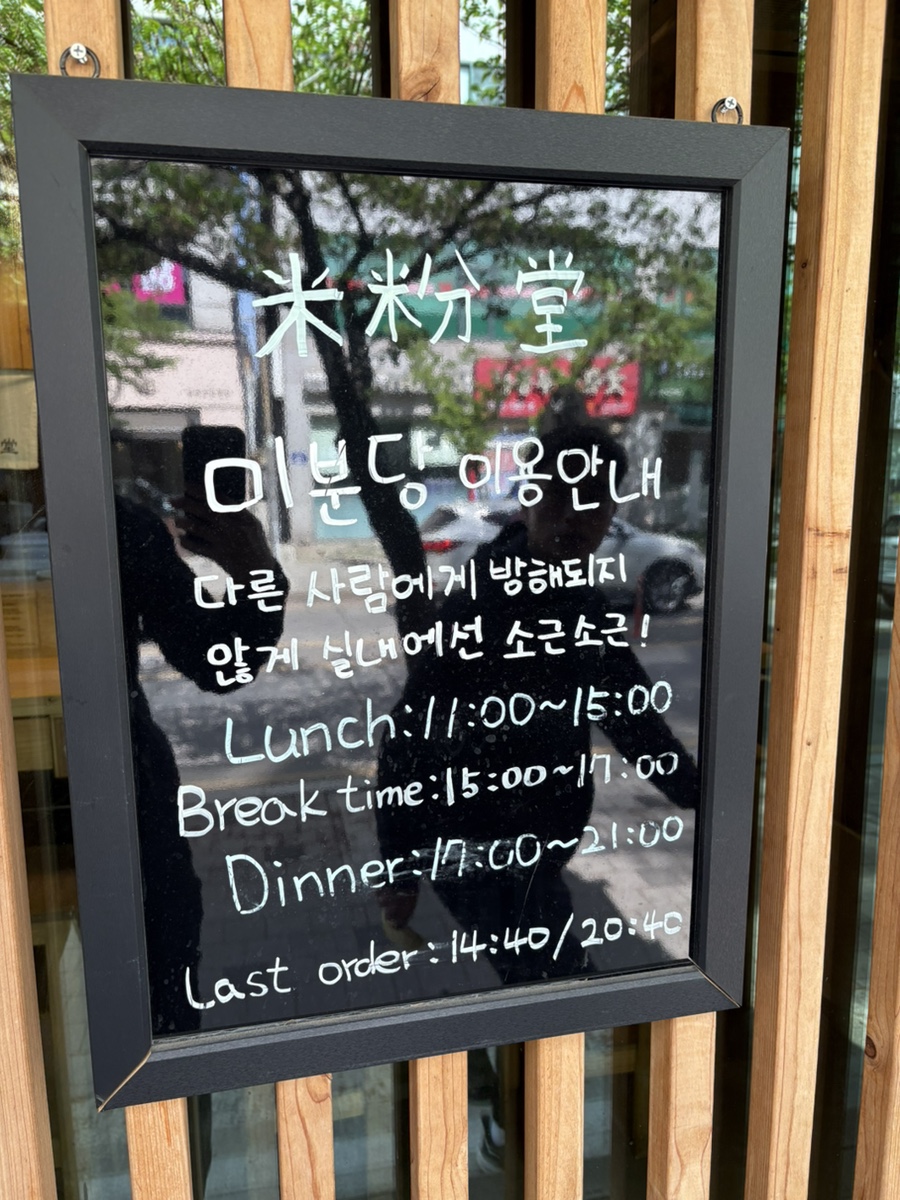 米粉堂
미분당 이용안내
다른 사람에게 방해되지
않게 실내에선 소근소근!
Lunch:11:00~15:00
Break time:15:00~17:00
Dinner:17:00~21:00
Last order:14:40/20:40
堂